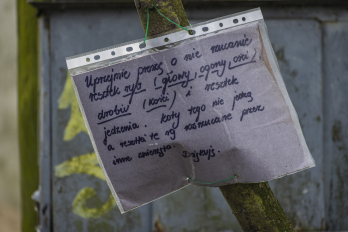 Uprzejmie proszę o nie rzucanie
resztek ryb (głowy, ogony, ości)
drobiu (kości) i resztek
jedzenia. Koty tego nie jedzą
a resztki te są roznoszone przez
inne zwierzęta